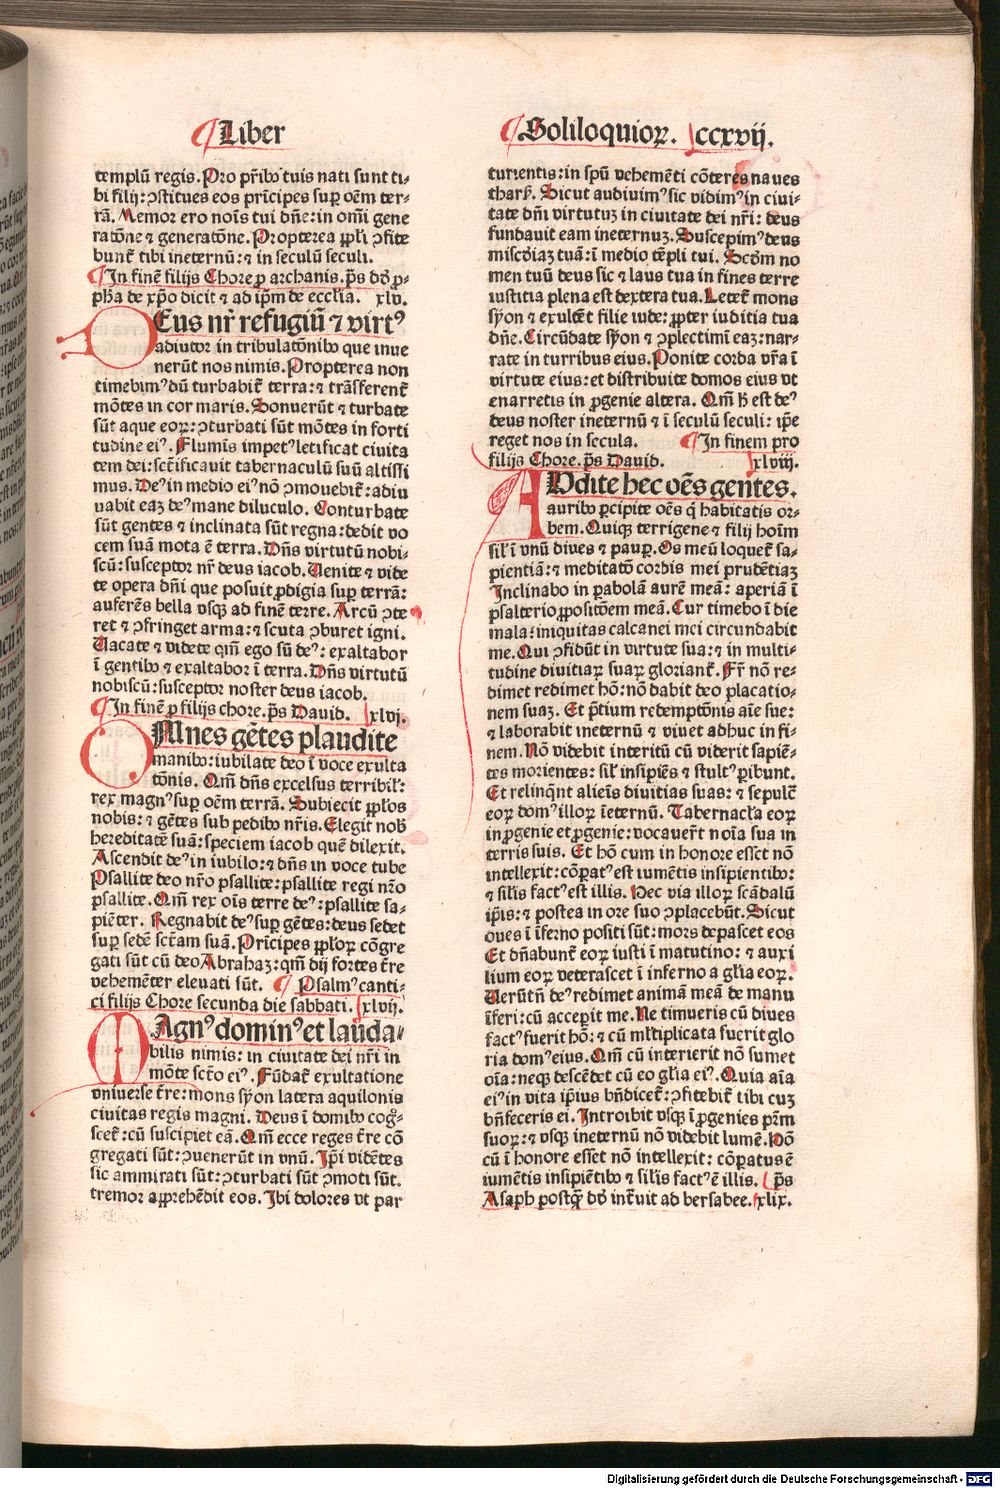 ¶ Liber
templū regis. Pro pr̄ibꝰ tuis nati sunt ti-
bi filij: ꝯstitues eos prīcipes suꝑ oēm ter-
rā. Memor ero noīs tui dn̄e: in om̄i gene
ratōne ⁊ generatōne. Propterea ppl̄i ꝯfite
bunt̄ tibi ineternū: ⁊ in seculū seculi.
¶ In finē filijs Chore ꝓ archanis. ps̄ dd̄ ꝓ-
ph̄a de xp̄o dicit ⁊ ad ip̄m de eccl̄ia. xlv.
DEus nr̄ refugiū ⁊ virtꝰ
adiutor in tribulatōnibꝰ que inue
nerūt nos nimis. Propterea non
timebimꝰ dū turbabit̄ terra: ⁊ trāsferent̄
mōtes in cor maris. Sonuerūt ⁊ turbate
sūt aque eoꝝ: ꝯturbati sūt mōtes in forti
tudine eiꝰ. Flumīs impetꝰ letificat ciuita
tem dei: sct̄ificauit tabernaculū suū altissi
mus. Deꝰ in medio eiꝰ nō ꝯmouebit̄: adiu
uabit eaz deꝰ mane diluculo. Conturbate
sūt gentes ⁊ inclinata sūt regna: dedit vo
cem suā mota ē terra. Dn̄s virtutū nobi-
scū: susceptor nr̄ deus iacob. Uenite ⁊ vide
te opera dn̄i que posuit ꝓdigia suꝑ terrā:
auferēs bella vsqꝫ ad finē terre. Arcū ꝯte
ret ⁊ ꝯfringet arma: ⁊ scuta ꝯburet igni.
Uacate ⁊ videte qm̄ ego sū deꝰ: exaltabor
ī gentibꝰ ⁊ exaltabor ī terra. Dn̄s virtutū
nobiscū: susceptor noster deus iacob.
¶ In finē ꝓ filijs chore. ps̄ Dauid. xlvj.
OMnes gētes plaudite
manibꝰ: iubilate deo ī voce exulta
tōnis. Qm̄ dn̄s excelsus terribil̄:
rex magnꝰ suꝑ oēm terrā. Subiecit ppl̄os
nobis: ⁊ gētes sub pedibꝰ nr̄is. Elegit nob̄
hereditatē suā: speciem iacob quē dilexit.
Ascendit deꝰ in iubilo: ⁊ dn̄s in voce tube
Psallite deo nr̄o psallite: psallite regi nr̄o
psallite. Qm̄ rex oīs terre deꝰ: psallite sa-
piēter. Regnabit deꝰ suꝑ gētes: deus sedet
suꝑ sedē sct̄am suā. Prīcipes ppl̄oꝝ cōgre
gati sūt cū deo Abrahaz: qm̄ dij fortes t̄re
vehemēter eleuati sūt. ¶ Psalmꝰ canti-
ci filijs Chore secunda die sabbati. xlvij.
MAgnꝰ dominꝰ et lauda-
bilis nimis: in ciuitate dei nr̄i in
mōte sct̄o eiꝰ. Fūdat̄ exultatione
vniuerse t̄re: mons syon latera aquilonis
ciuitas regis magni. Deus ī domibꝰ cog̊-
scet̄: cū suscipiet eā. Qm̄ ecce reges t̄re cō
gregati sūt: ꝯuenerūt in vnū. Ip̄i vidētes
sic ammirati sūt: ꝯturbati sūt ꝯmoti sūt.
tremor apprehēdit eos. Ibi dolores vt par
¶ Soliloquioꝝ. ccxvij.
turientis: in spū vehemēti cōteres naues
thars̄. Sicut audiuimꝰ sic vidimꝰ in ciui-
tate dn̄i virtutuz in ciuitate dei nr̄i: deus
fundauit eam ineternuz. Suscepimꝰ deus
misc̄diaz tuā: ī medio tēpli tui. Scd̄m no
men tuū deus sic ⁊ laus tua in fines terre
iustitia plena est dextera tua. Letet̄ mons
syon ⁊ exultēt filie iude: ꝓpter iuditia tua
dn̄e. Circūdate syon ⁊ ꝯplectimī eaz: nar-
rate in turribus eius. Ponite corda vr̄a ī
virtute eius: et distribuite domos eius vt
enarretis in ꝓgenie altera. Qm̄ h̄ est deꝰ
deus noster ineternū ⁊ ī seculū seculi: ip̄e
reget nos in secula. ¶ In finem pro
filijs Chore. ps̄ Dauid. xlviij.
AUdite hec oēs gentes.
auribꝰ ꝑcipite oēs q̄ habitatis or-
bem. Quiqꝫ terrigene ⁊ filij hoīm
sil̄ ī vnū diues ⁊ pauꝑ. Os meū loquet̄ sa-
pientiā: ⁊ meditatō cordis mei prudētiaz
Inclinabo in ꝑabolā aurē meā: aperiā ī
psalterio ꝓpositōem meā. Cur timebo ī die
mala: iniquitas calcanei mei circundabit
me. Qui ꝯfidūt in virtute sua: ⁊ in multi-
tudine diuitiaꝝ suaꝝ gloriant̄. Fr̄ nō re-
dimet redimet hō: nō dabit deo placatio-
nem suaz. Et p̄tium redemptōnis aīe sue:
⁊ laborabit ineternū ⁊ viuet adhuc in fi-
nem. Nō videbit interitū cū viderit sapiē-
tes morientes: sil̄ insipiēs ⁊ stultꝰ ꝑibunt.
Et relinq̄nt alienis diuitias suas: ⁊ sepulcē
eoꝝ domꝰ illoꝝ īeternū. Tabernacl̄a eoꝝ
in ꝓgenie et ꝓgenie: vocauer̄t noīa sua in
terris suis. Et hō cum in honore esset nō
intellexit: cōꝑatꝰ est iumētis insipientibꝰ:
⁊ sil̄is factꝰ est illis. Hec via illoꝝ scādalū
ip̄is: ⁊ postea in ore suo ꝯplacebūt. Sicut
oues ī īferno positi sūt: mors depascet eos
Et dn̄abunt̄ eoꝝ iusti ī matutino: ⁊ auxi
lium eoꝝ veterascet ī inferno a gl̄ia eoꝝ.
Uerūtn̄ deꝰ redimet animā meā de manu
īferi: cū acceꝑit me. Ne timueris cū diues
factꝰ fuerit hō: ⁊ cū ml̄tiplicata fuerit glo
ria domꝰ eius. Qm̄ cū interierit nō sumet
oīa: neqꝫ descēdet cū eo gl̄ia eiꝰ. Quia aīa
eiꝰ in vita ip̄ius bn̄dicet̄: ꝯfitebit̄ tibi cuz
bn̄feceris ei. Introibit vsqꝫ ī ꝓgenies pr̄m
suoꝝ: ⁊ vsqꝫ ineternū nō videbit lumē. Hō
cū ī honore esset nō intellexit: cōꝑatus ē
iumētis insipiētibꝰ ⁊ sil̄is factꝰ ē illis. ps̄
Asaph postq̄ dd̄ int̄uit ad bersabee. xlix.
Digitalisierung gefördert durch die Deutsche Forschungsgemeinschaft - DFG